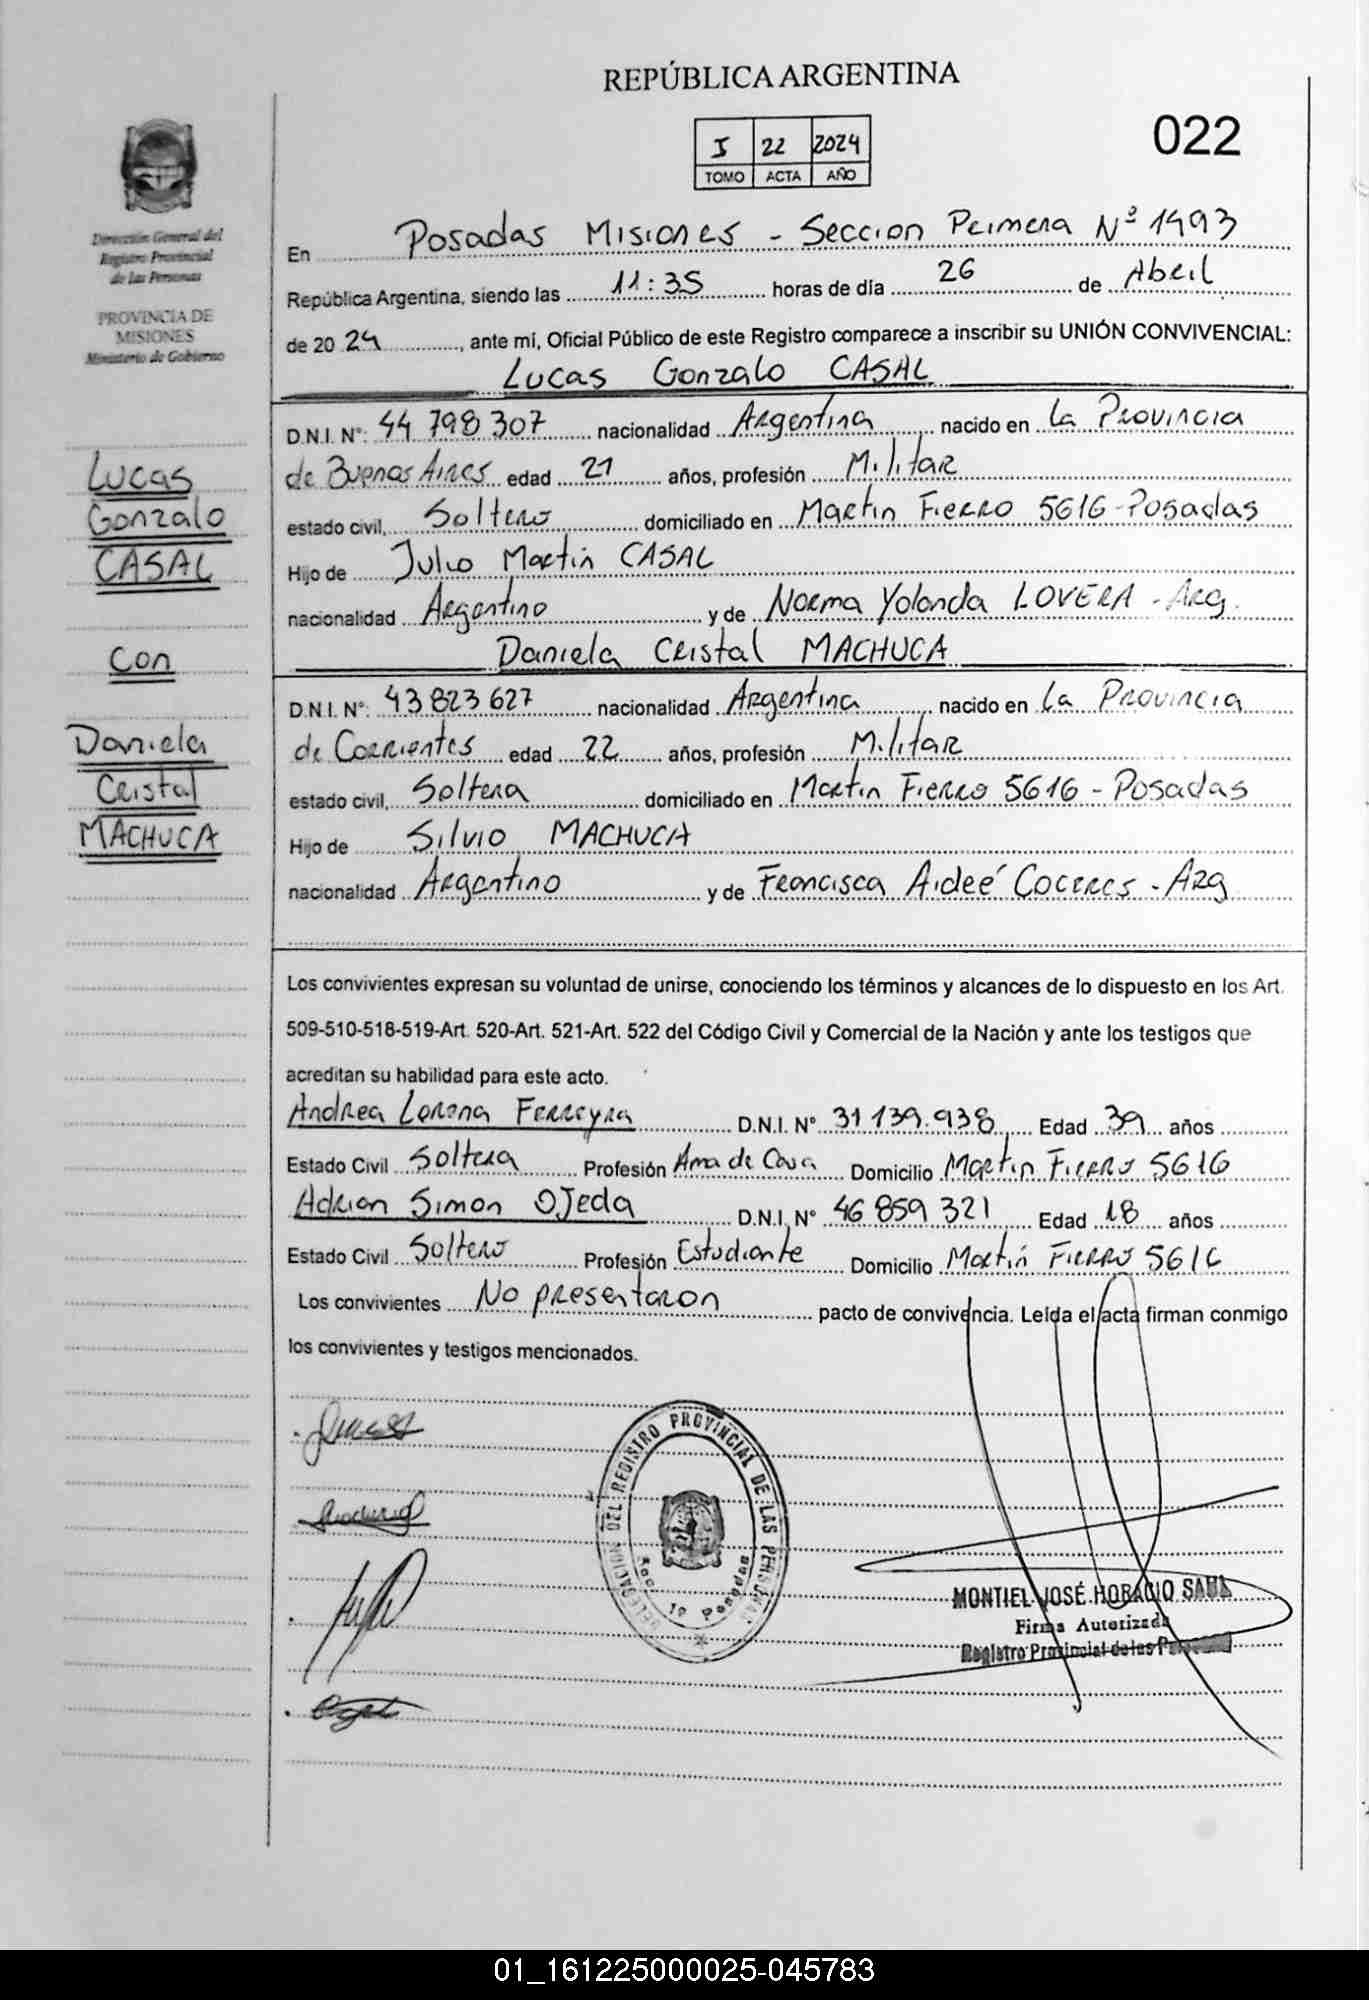 REPÚBLICA ARGENTINA
I 22 2024
TOMO ACTA AÑO
022
Dirección General del
Registro Provincial
de las Personas
PROVINCIA DE
MISIONES
Ministerio de Gobierno
En Posadas Misiones - Seccion Primera Nº 1493
República Argentina, siendo las 11:35 horas de día 26 de Abril
de 20 24, ante mí, Oficial Público de este Registro comparece a inscribir su UNIÓN CONVIVENCIAL:
Lucas Gonzalo CASAL
D.N.I. Nº: 44 798 307 nacionalidad Argentina nacido en La Provincia
de Buenos Aires edad 21 años, profesión Militar
estado civil, Soltero domiciliado en Martin Fierro 5616-Posadas
Hijo de Julio Martin CASAL
nacionalidad Argentino y de Norma Yolanda LOVERA - Arg.
Daniela Cristal MACHUCA
D.N.I. Nº: 43 823 627 nacionalidad Argentina nacido en La Provincia
de Corrientes edad 22 años, profesión Militar
estado civil, Soltera domiciliado en Martin Fierro 5616 - Posadas
Hijo de Silvio MACHUCA
nacionalidad Argentino y de Francisca Aideé Coceres - Arg
Lucas
Gonzalo
CASAL
Con
Daniela
Cristal
MACHUCA
Los convivientes expresan su voluntad de unirse, conociendo los términos y alcances de lo dispuesto en los Art.
509-510-518-519-Art. 520-Art. 521-Art. 522 del Código Civil y Comercial de la Nación y ante los testigos que
acreditan su habilidad para este acto.
Andrea Lorena Ferreyra D.N.I. Nº 31 139.938 Edad 39 años
Estado Civil Soltera Profesión Ama de Casa Domicilio Martin Fierro 5616
Adrian Simon OJeda D.N.I. Nº 46 859 321 Edad 18 años
Estado Civil Soltero Profesión Estudiante Domicilio Martin Fierro 5616
Los convivientes No presentaron pacto de convivencia. Leída el acta firman conmigo
los convivientes y testigos mencionados.
DELEGACION DEL REGISTRO PROVINCIAL DE LAS PERSONAS
Sec 1º Posadas
MONTIEL JOSÉ HORACIO SAUL
Firma Autorizada
Registro Provincial de las
01_161225000025-045783